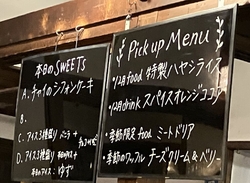 本日のSWEETS
A. チャイのシフォンケーキ
B.
C. アイス3種盛り バニラ +
D. アイス3種盛り +
ゆず
Pick up Menu
・12月 food 特製ハヤシライス
・12月 drink スパイスオレンジココア
・季節限定 food ミートドリア
・季節のワッフル チーズクリーム&ベリー